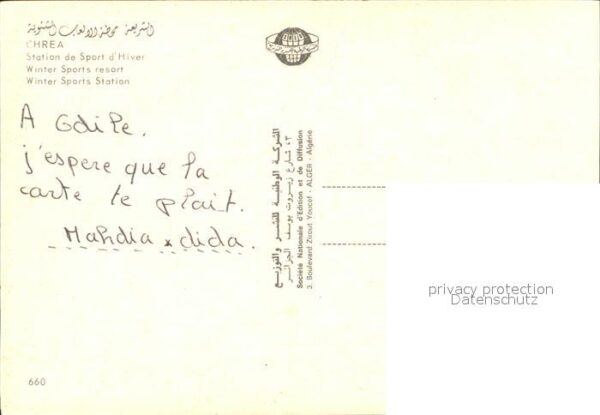 الشريعة محطة الالعاب الشتوية
CHREA
Station de Sport d'Hiver
Winter Sports resort
Winter Sports Station
A Odile.
j'espere que la
carte te plait.
Mahdia x dida.
الشركة الوطنية للنشر والتوزيع
٣، شارع زيروت يوسف الجزائر
Société Nationale d'Edition et de Diffusion
3. Boulevard Zirout Youcef - ALGER - Algérie
privacy protection
Datenschutz
660